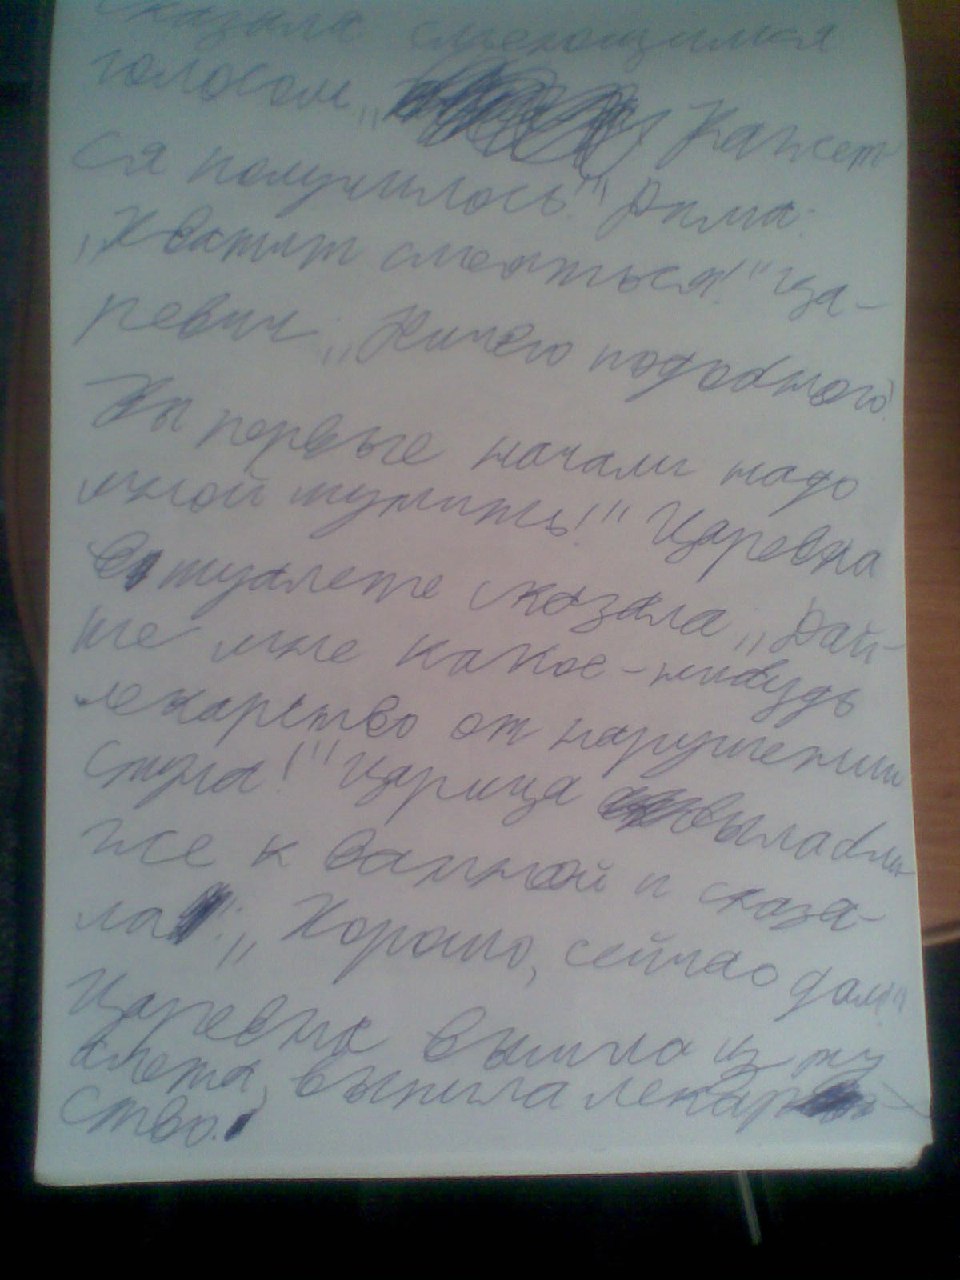 сказала смеющимся
голосом „ Кажет
ся получилось!" Дима:
„Хватит смеяться!" Ца-
ревич „Ничего подобного!
Вы первые начали надо
мной шутить!" Царевна
в туалете сказала „Дай-
те мне какое-нибудь
лекарство от нарушения
стула!" Царица была бли
же к ванной и сказа-
ла: „Хорошо, сейчас дам"
Царевна вышла из ту
алета, выпила лекар
ство.